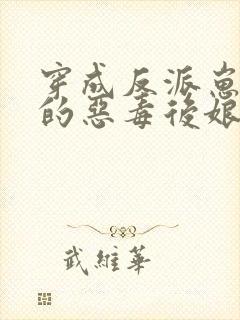 穿成反派崽
的惡毒後娘
武維華